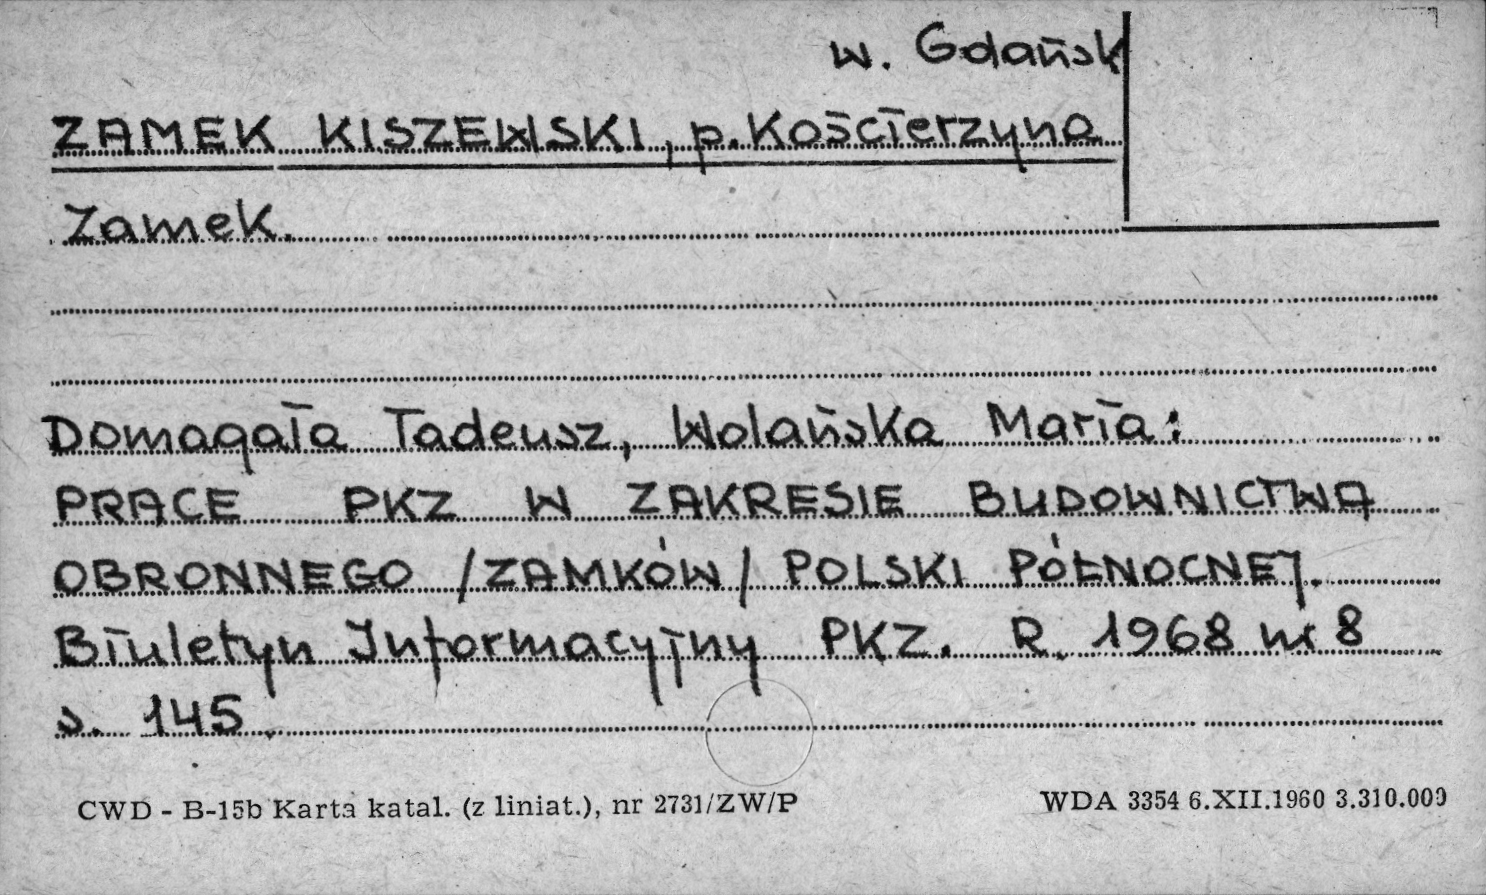 w. Gdańsk
ZAMEK KISZEWSKI, p. Kościerzyna
Zamek.
Domagała Tadeusz, Wolańska Maria:
PRACE PKZ W ZAKRESIE BUDOWNICTWA
OBRONNEGO /ZAMKÓW/ POLSKI PÓŁNOCNEJ.
Biuletyn Informacyjny PKZ. R. 1968 nr 8
s. 145.
CWD - B-15b Karta katal. (z liniat.), nr 2731/ZW/P
WDA 3354 6.XII.1960 3.310.000